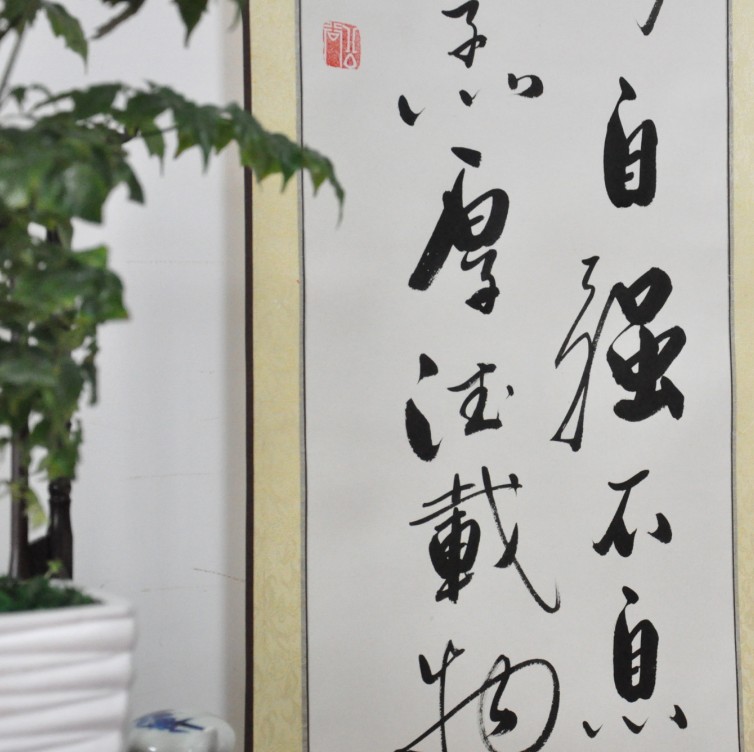 自强不息
子以厚德載物